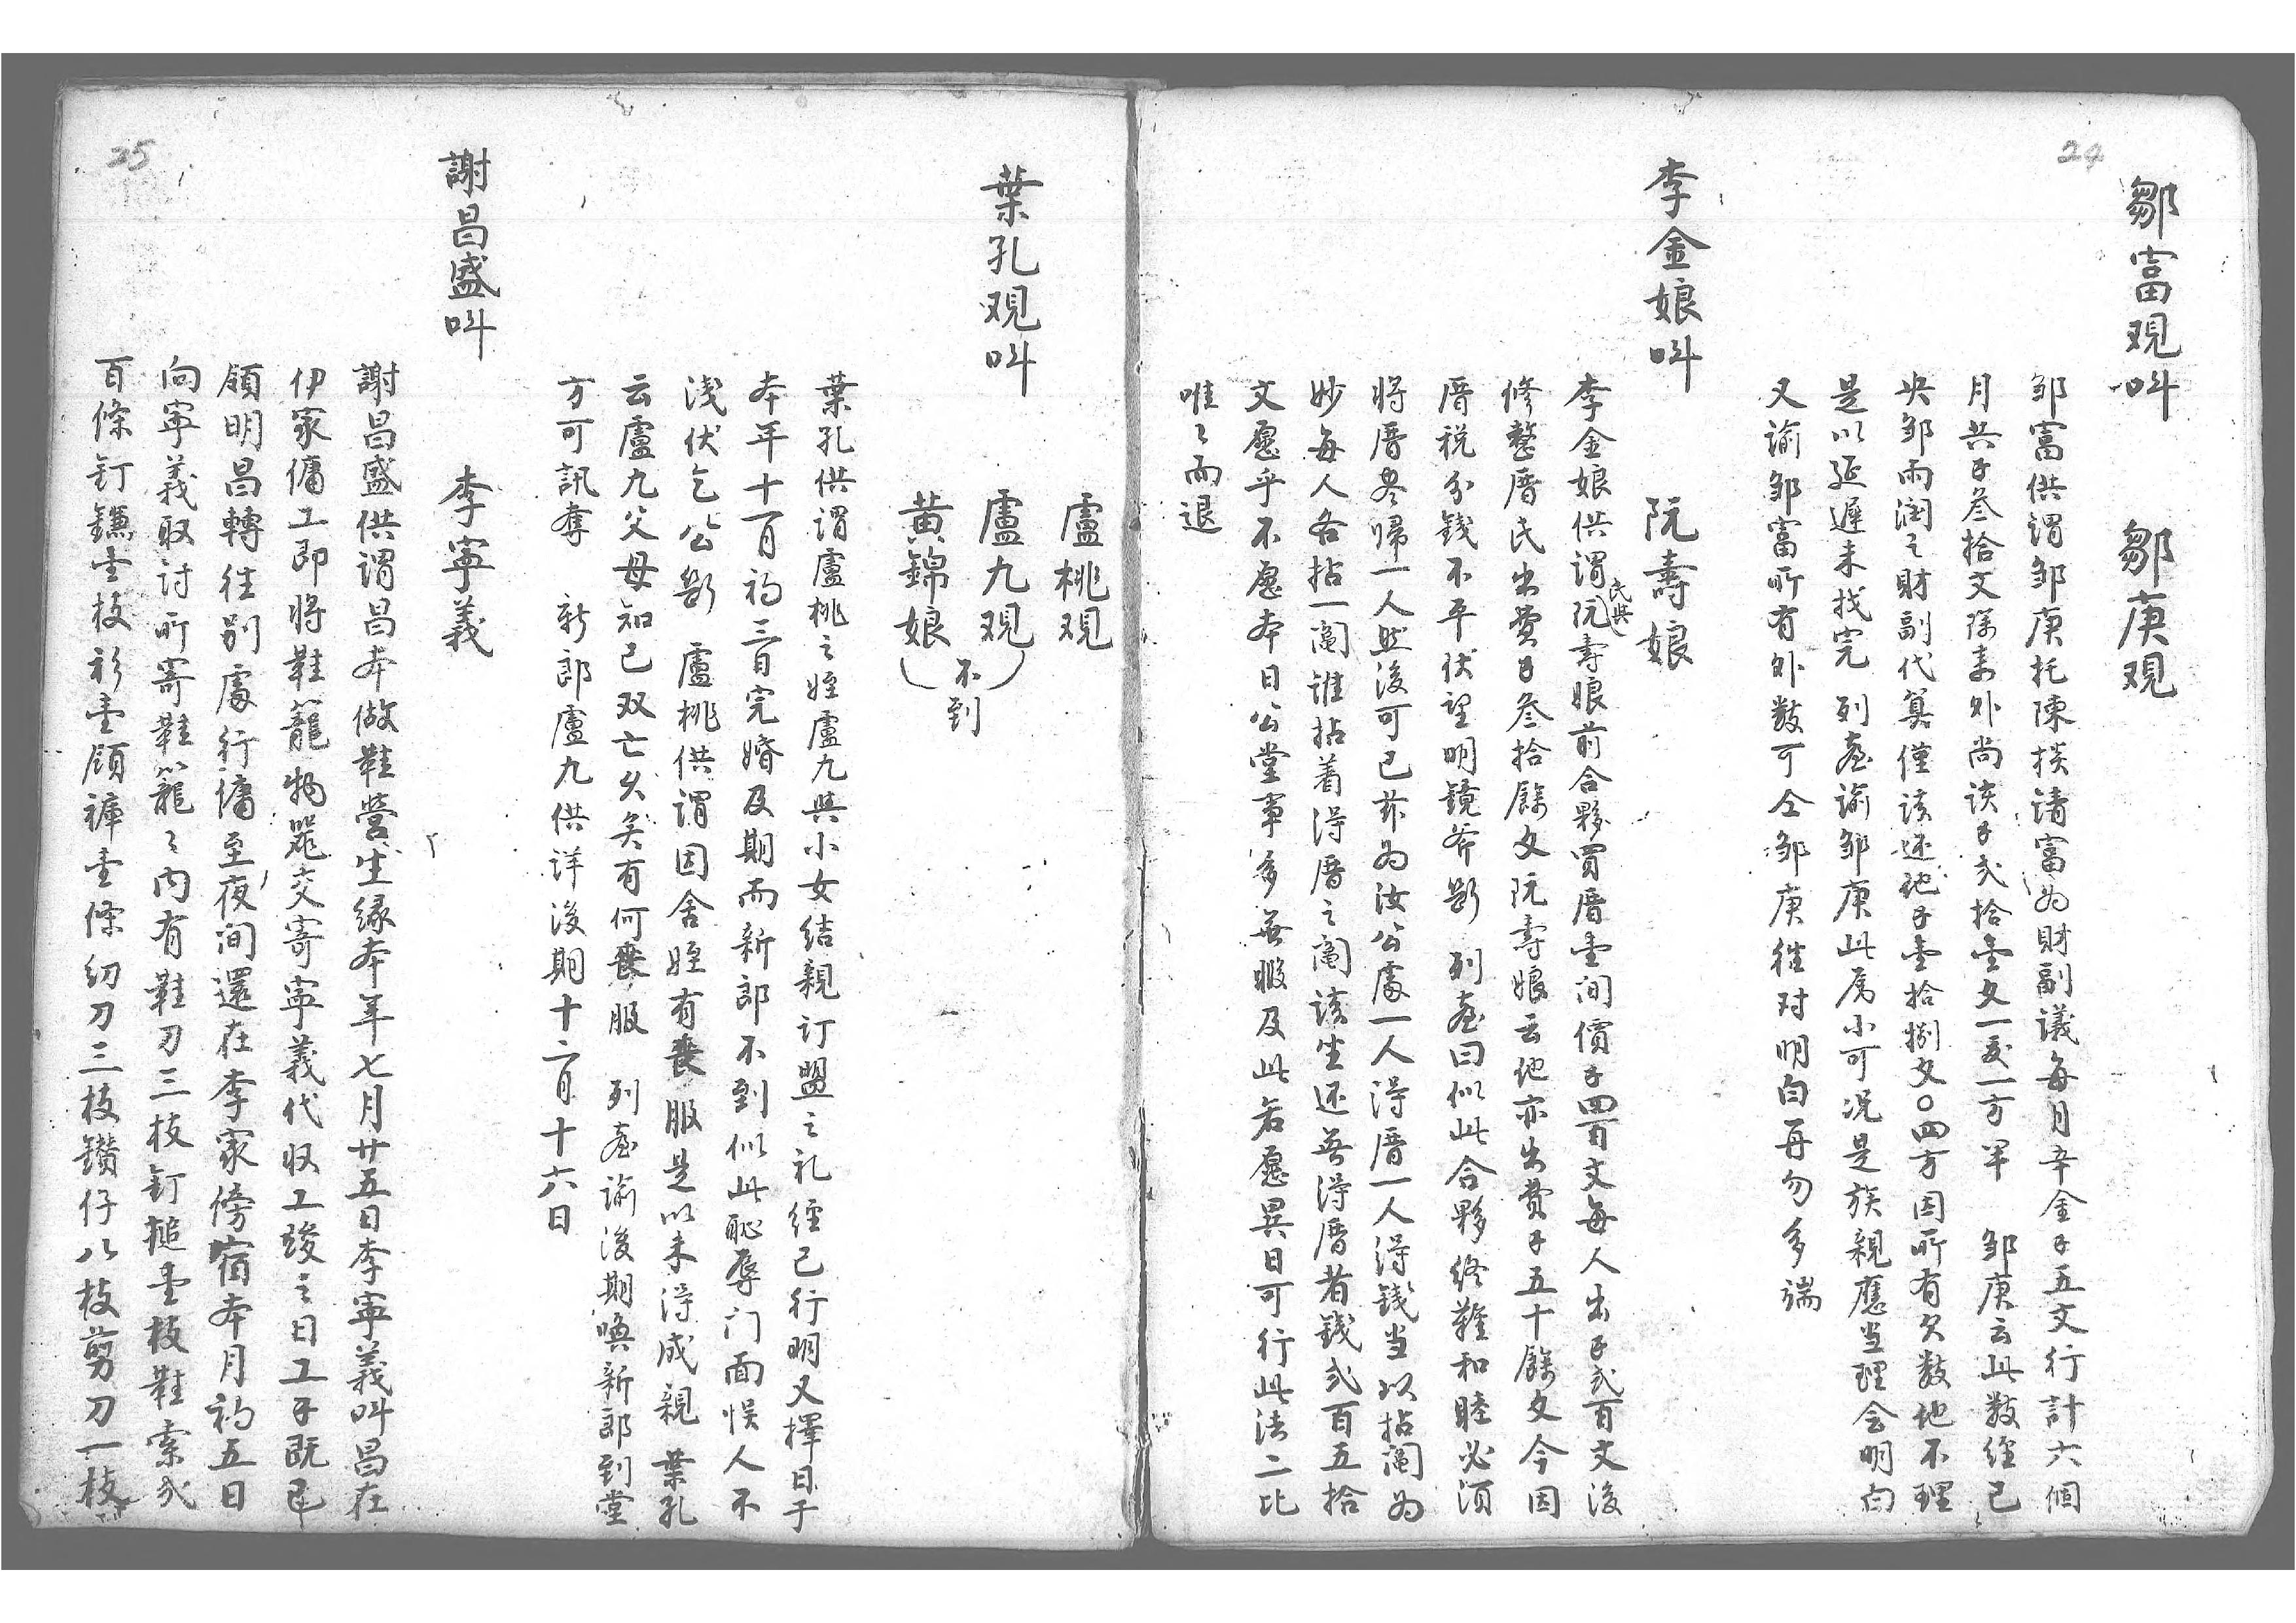 24
鄒富观叫 鄒庚观
邹富供谓邹庚托陳棪请富为财副議每月辛金子五文行計六個
月共子叁拾文除来外尚该子弍拾壹文一爻一方半 邹庚云此数经已
央邹雨润之财副代算僅该还他子壹拾捌文〇四方因所有欠数他不理
是以延遲未找完 列臺谕邹庚此属小可况是族親應当理会明白
又谕邹富所有外数可仝邹庚往对明白再勿多端
李金娘叫 阮壽娘
李金娘供谓民與阮壽娘前合夥買厝壹间價子四百文每人出子弍百文後
修整厝民出费子叁拾餘文阮壽娘云他亦出费子五十餘文今因
厝税分錢不平伏望明镜斧断 列臺曰似此合夥终難和睦必须
将厝尽歸一人然後可已兹为汝公處一人得厝一人得錢当以拈阄为
妙每人各拈一阄谁拈着得厝之阄该坐还無得厝者錢弍百五拾
文愿乎不愿本日公堂事多無暇及此若愿異日可行此法二比
唯〻而退
葉孔观叫 盧桃观
盧九观
黄錦娘
不到
葉孔供謂盧桃之姪盧九與小女结親订盟之礼经已行明又擇日于
本年十一月初三日完婚及期而新郎不到似此恥辱门面悮人不
浅伏乞公断 盧桃供谓因舍姪有丧服是以未得成親 葉孔
云盧九父母知已双亡久矣有何丧服 列臺谕後期喚新郎到堂
方可訊奪 新郎盧九供详後期十二月十六日
謝昌盛叫 李寧義
謝昌盛供谓昌本做鞋营生缘本年七月廿五日李寧義叫昌在
伊家傭工即将鞋籠物器交寄寧義代收工竣之日工子既已
領明昌轉往别處行傭至夜间還在李家傍宿本月初五日
向寧義取討所寄鞋籠〻内有鞋刀三枝釘搥壹枝鞋索弍
百條釘鐮壹枝衫壹領褲壹條纫刀三枝鑽仔八枝剪刀一枝
25